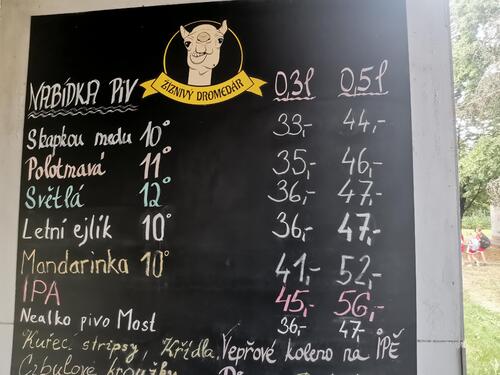 ŽÍZNIVÝ DROMEDÁR
NABÍDKA PIV 0,3l 0,5l
S kapkou medu 10° 33,- 44,-
Polotmavá 11° 35,- 46,-
Světlá 12° 36,- 47,-
Letní ejlík 10° 36,- 47,-
Mandarinka 10° 41,- 52,-
IPA 45,- 56,-
Nealko pivo Most 36,- 47,-
Kuřec. stripsy, Křídla, Vepřové koleno na IPĚ
Cibulové kroužky